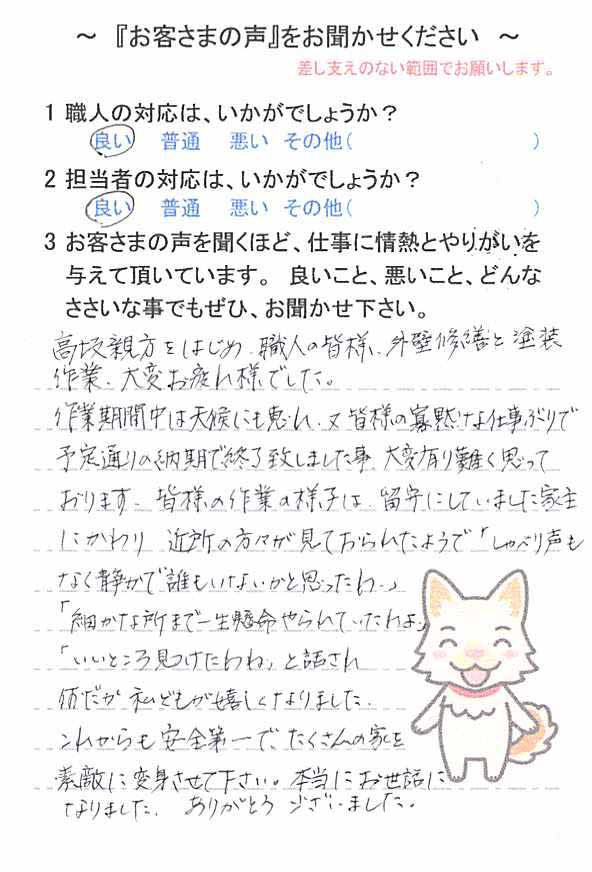 ～ 『お客さまの声』をお聞かせください ～
差し支えのない範囲でお願いします。
1 職人の対応は、いかがでしょうか？
良い 普通 悪い その他( )
2 担当者の対応は、いかがでしょうか？
良い 普通 悪い その他( )
3 お客さまの声を聞くほど、仕事に情熱とやりがいを
与えて頂いています。 良いこと、悪いこと、どんな
ささいな事でもぜひ、お聞かせ下さい。
高坂親方をはじめ、職人の皆様、外壁修繕と塗装
作業、大変お疲れ様でした。
作業期間中は天候にも恵れ、又皆様の寡黙な仕事ぶりで
予定通りの納期で終了致しました事、大変有り難く思って
おります。皆様の作業の様子は、留守にしていました家主
にかわり 近所の方々が見ておられたようで「しゃべり声も
なく静かで誰もいないかと思ったわ。」
「細かな所まで一生懸命やられていたわよ」
「いいところ見つけたわね」と話され
何だか私どもが嬉しくなりました。
これからも安全第一で、たくさんの家を
素敵に変身させて下さい。本当にお世話に
なりました。 ありがとうございました。